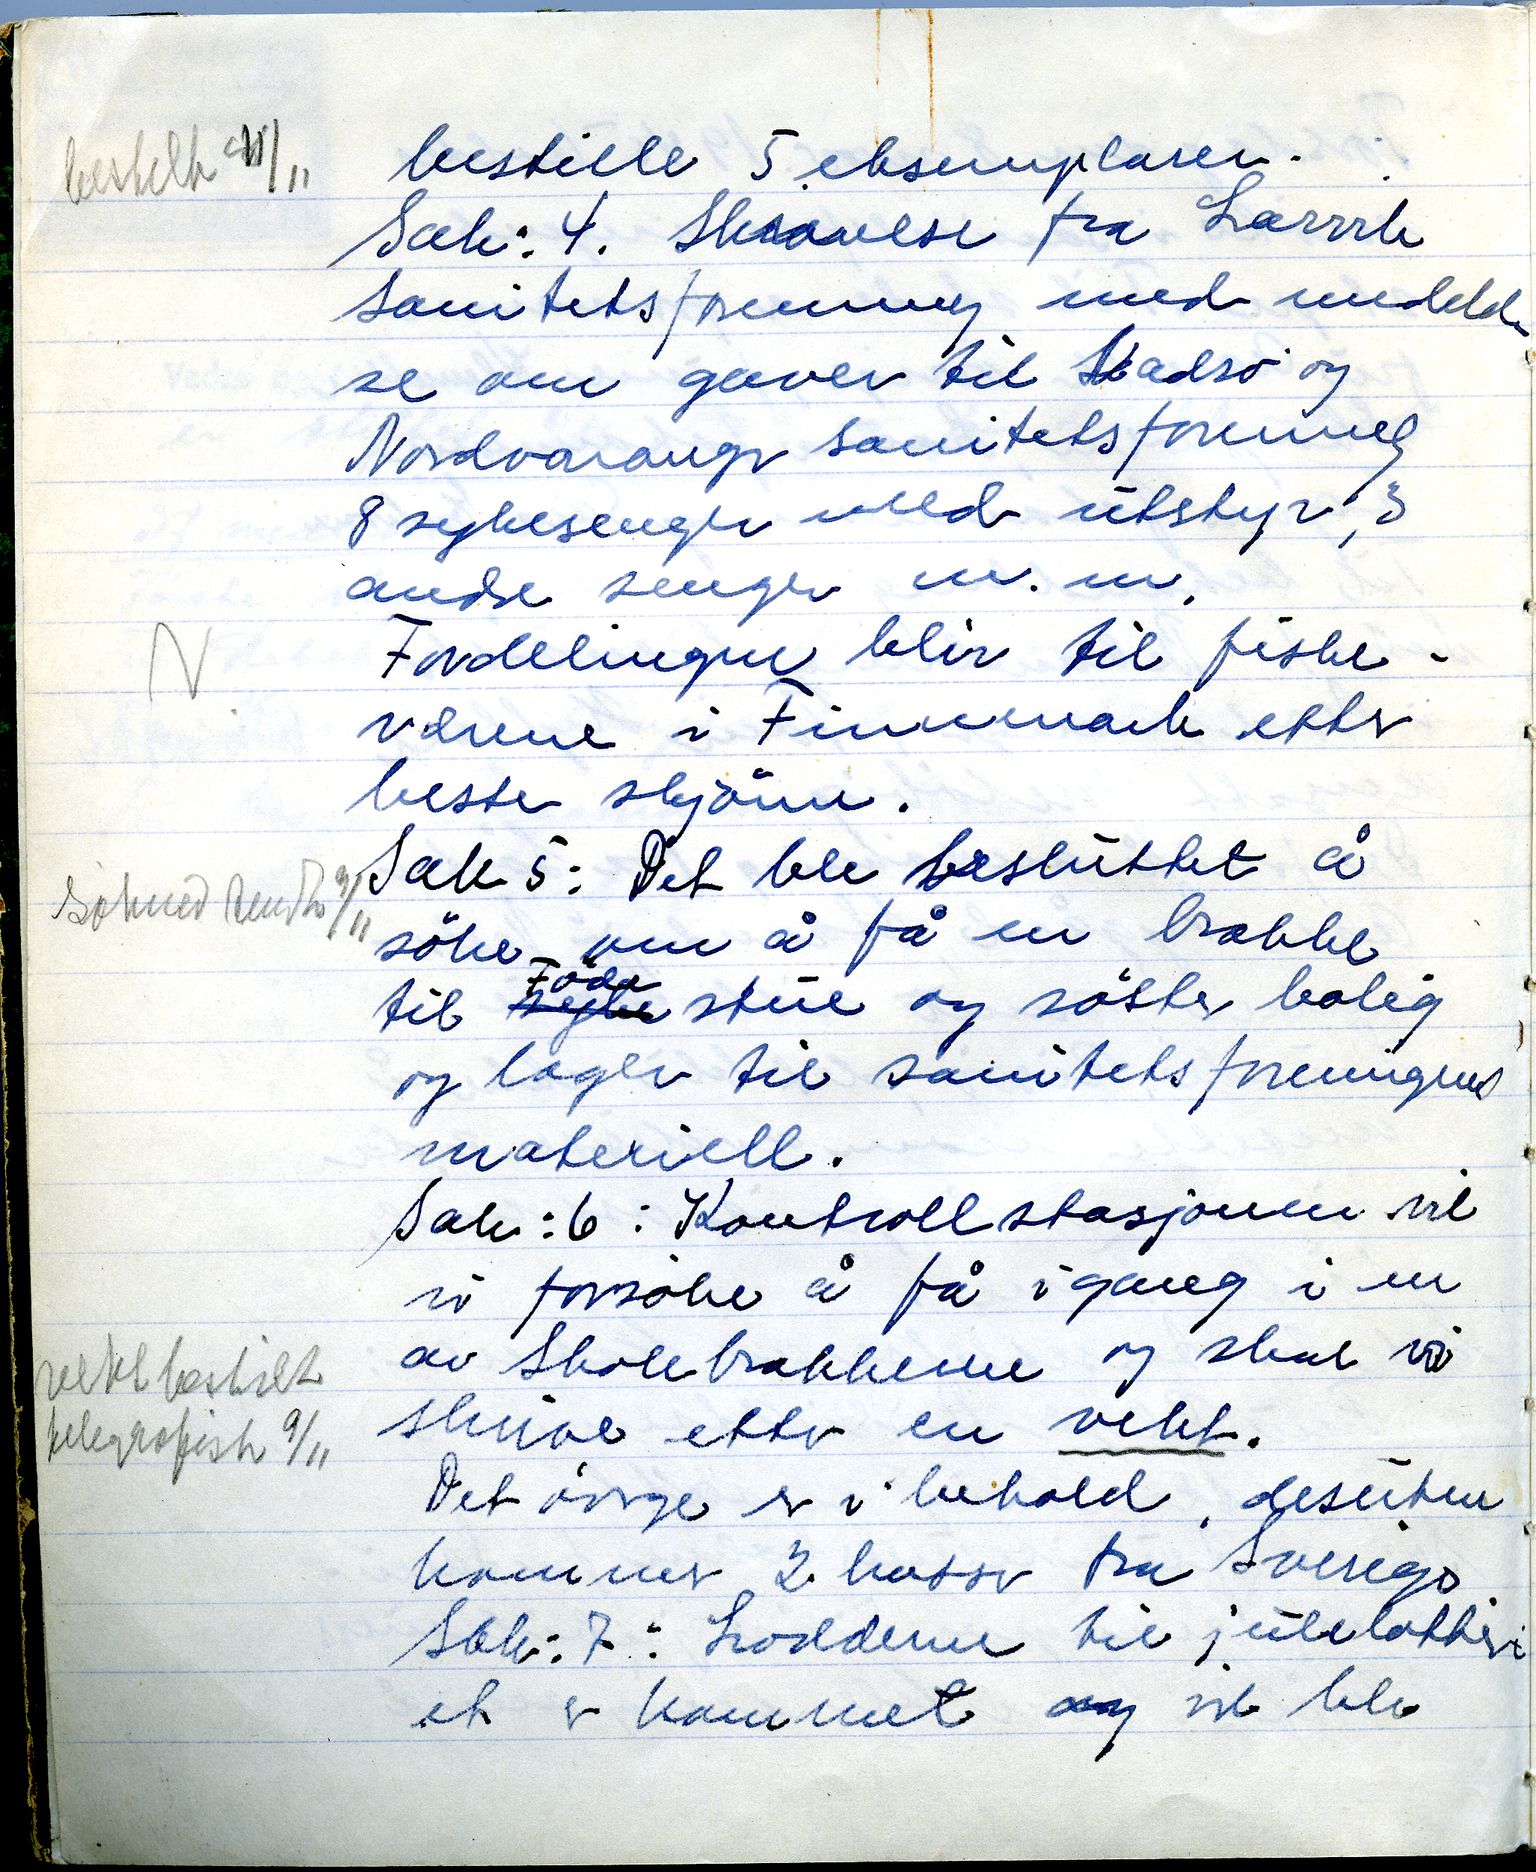 bestilt 11/11
bestille 5 eksemplarer.
Sak: 4. Skrivelse fra Larvik
Sanitetsforening med meddel
se om gaver til Vadsö og
Nordvaranger Sanitetsforening
8 sykesenger med utstyr, 3
andre senger m.m.
N
Fordelingen blir til fiske-
værene i Finnmark etter
beste skjönn.
Sak 5: Det ble besluttet å
söknad sendt 9/11
söke om å få en brakke
Föde
til syke stue og söster bolig
og lager til sanitetsforeningens
materiell.
Sak: 6: Kontrollstasjonen vil
vi forsöke å få igang i en
av Skolebrakkene og skal vi
vekt bestilt
skrive etter en vekt.
telegrafisk 9/11
Det övrige er i behold, desuten
kommer 2 kasser fra Sverige
Sak: 7: Loddene til julelotteri
et er kommet og vil ble